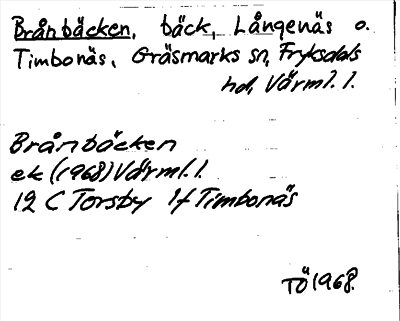 Brånbäcken, bäck, Långenäs o.
Timbonäs, Gräsmarks sn, Fryksdals
hd, Värml. l.
Brånbäcken
ek (1968) Värml. l.
12 C Torsby 1f Timbonäs
TÖ 1968.